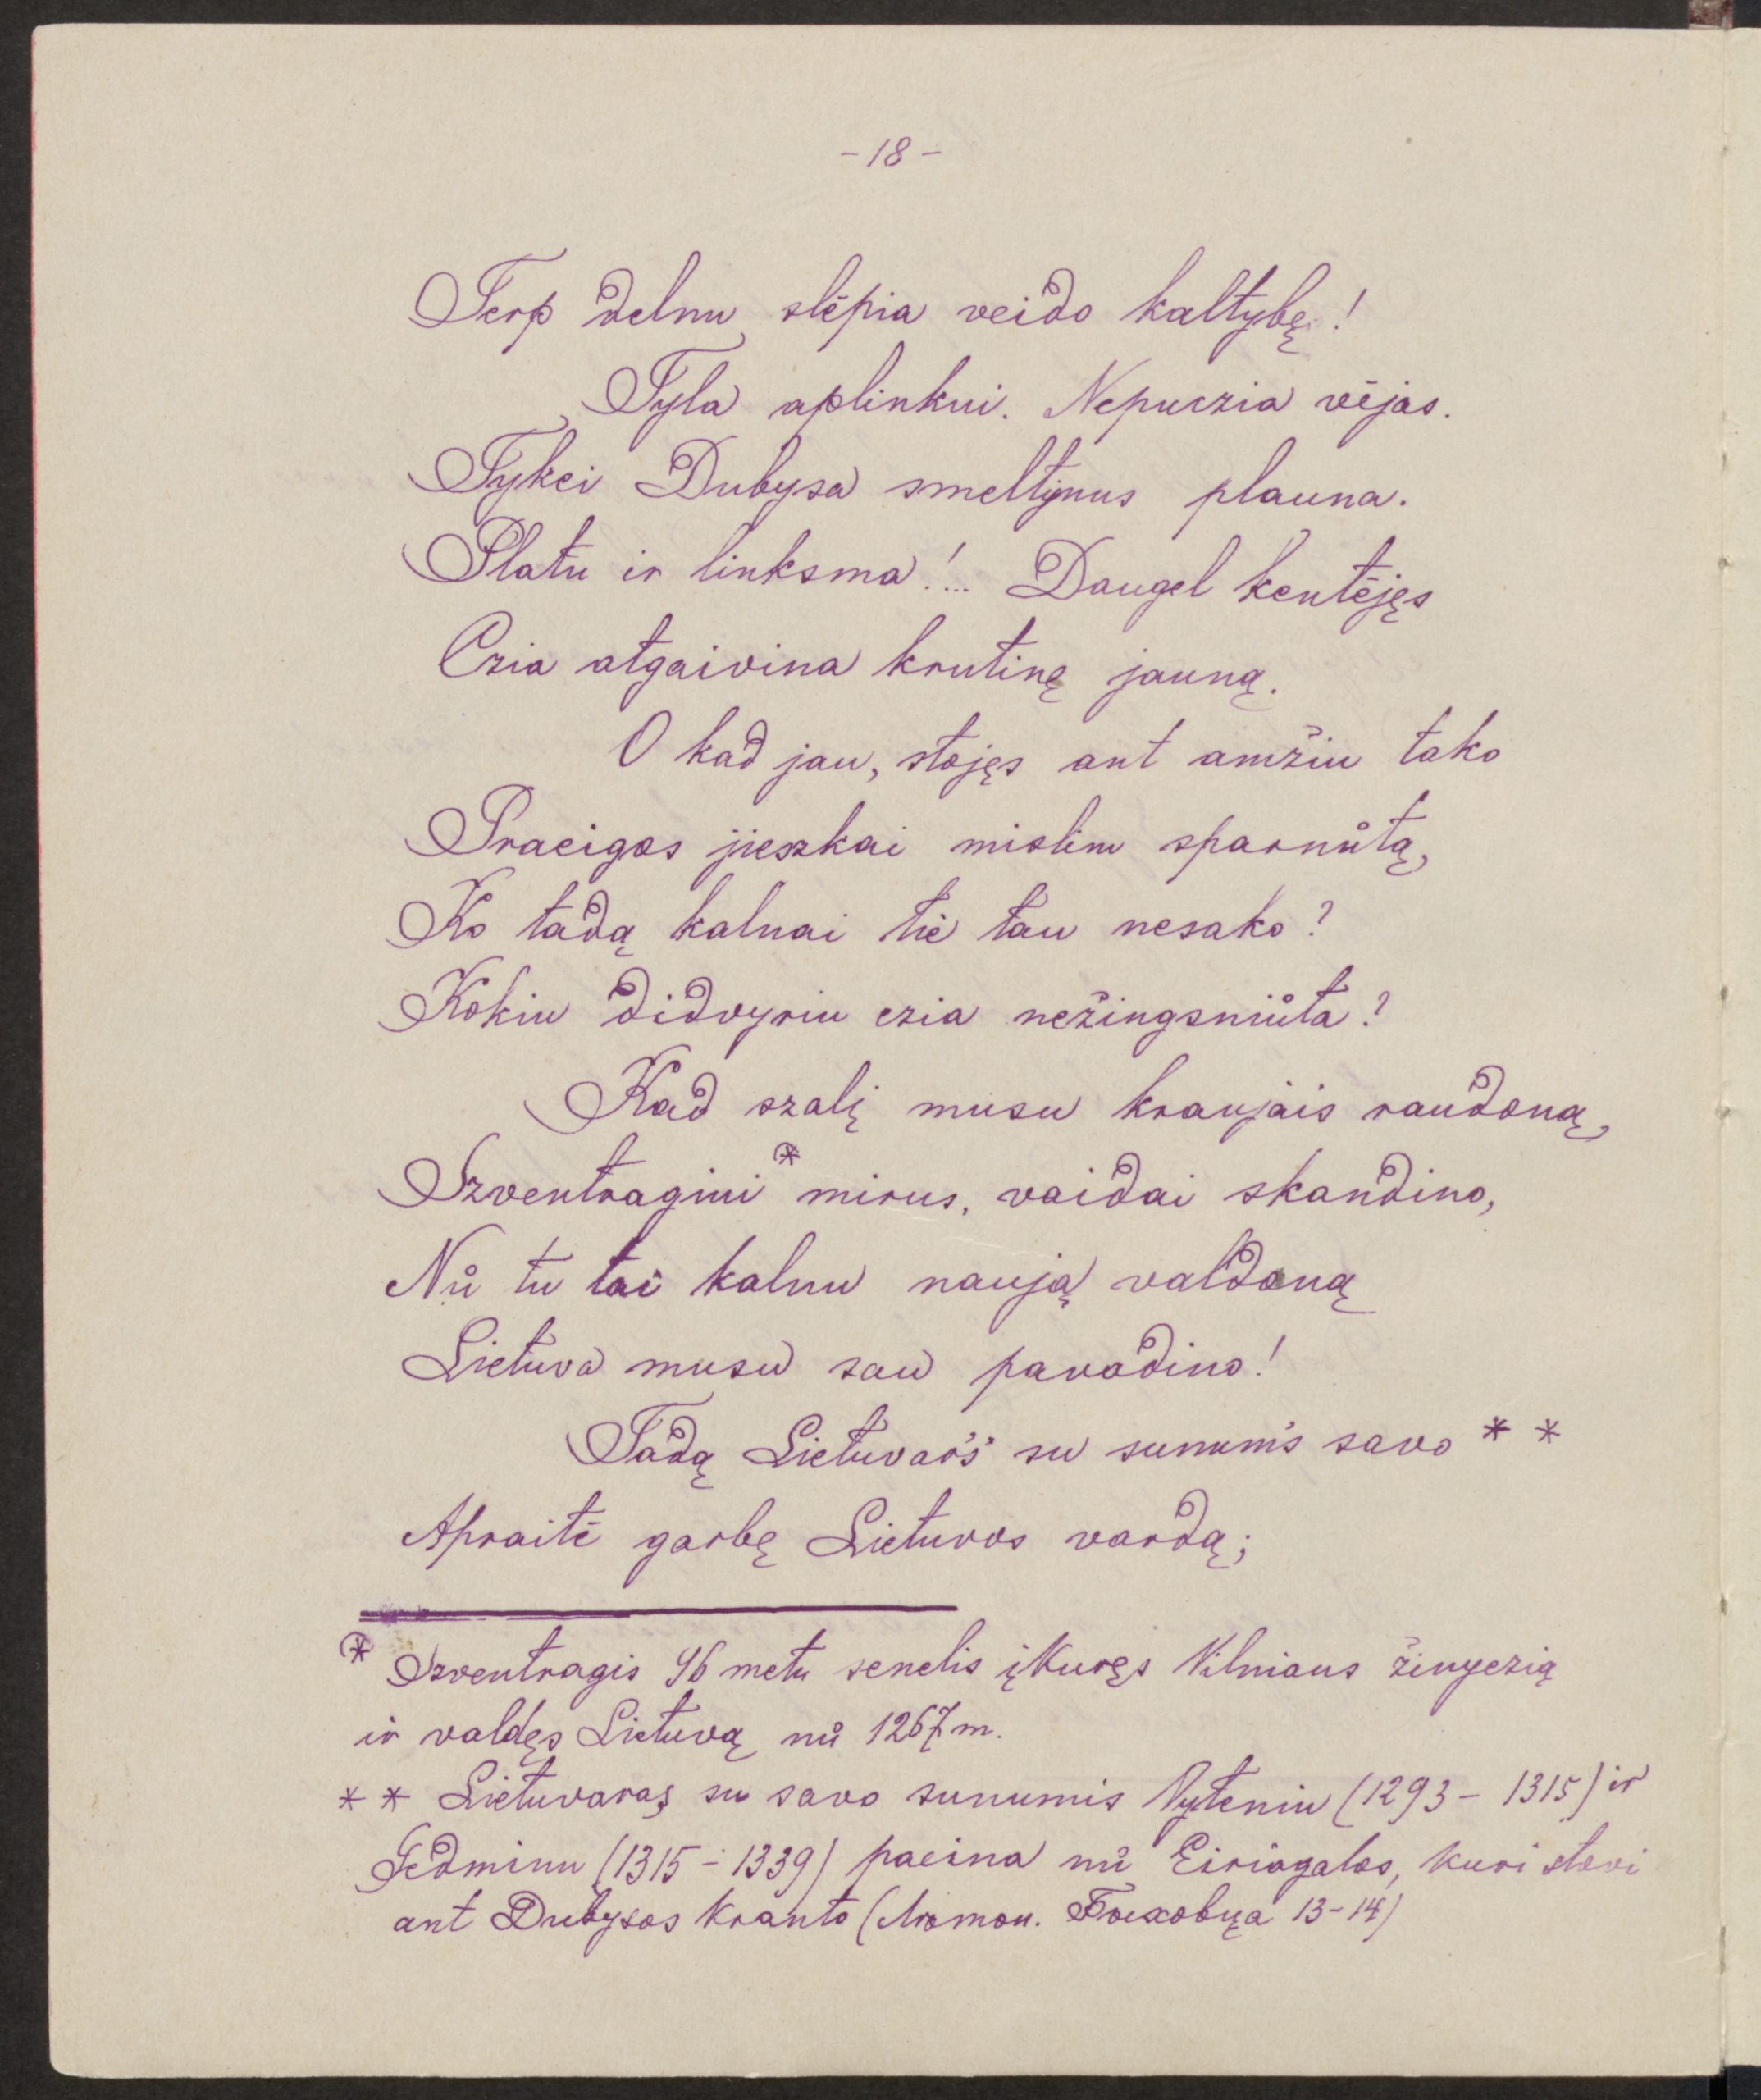 - 18 -
Terp delnu slėpia veido kaltybę!
Tyla aplinkui. Nepuczia vėjas.
Tykei Dubysa smeltynus plauna.
Platu ir linksma!... Daugel kentėjęs
Czia atgaivina krutinę jauną.
O kad jau, stojęs ant amžiu tako
Praeigos jieszkai mislim sparnůtą,
Ko tadą kalnai tiė tau nesako?
Kokiu didvyriu czia nežingsniůta?
Kad szalį musu kraujais raudoną,
Szventragini * mirus, vaidai skandino,
Nů tu tai kalnu naują valdoną
Lietuva musu sau pavadino!
Tadą Lietuvar's su sunum's savo * *
Apraitė garbę Lietuvos vardą;
* Szventragis 96 metu senelis įkuręs Vilniaus žinyczią
ir valdęs Lietuvą nů 1267 m.
* * Lietuvaras su savo sunumis Vyteniu (1293 - 1315) ir
Gedminu (1315 - 1339) paeina nů Eiriagalos, kuri stovi
ant Dubysos kranto 13-14)